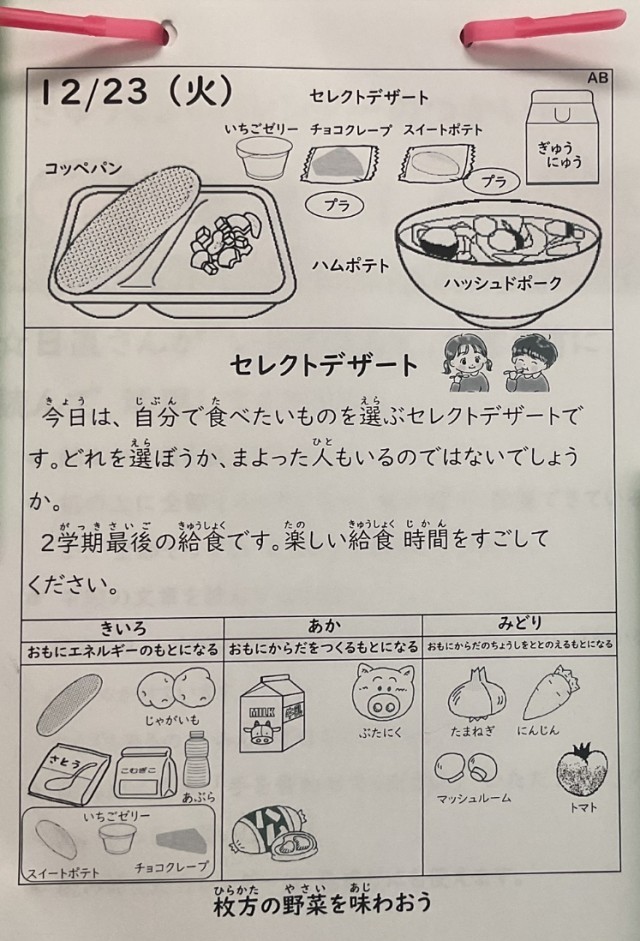 AB
12/23（火）
セレクトデザート
いちごゼリー チョコクレープ スイートポテト
ぎゅう
にゅう
コッペパン
プラ
プラ
ハムポテト
ハッシュドポーク
セレクトデザート
きょう じぶん た えら
今日は、自分で食べたいものを選ぶセレクトデザートで
えら ひと
す。どれを選ぼうか、まよった人もいるのではないでしょう
か。
がっきさいご きゅうしょく たの きゅうしょく じかん
2学期最後の給食です。楽しい給食 時間をすごして
ください。
きいろ あか みどり
おもにエネルギーのもとになる おもにからだをつくるもとになる おもにからだのちょうしをととのえるもとになる
じゃがいも
さとう
こむぎこ
あぶら
いちごゼリー
スイートポテト チョコクレープ
MILK
ぶたにく
たまねぎ にんじん
マッシュルーム
トマト
ひらかた やさい あじ
枚方の野菜を味わおう